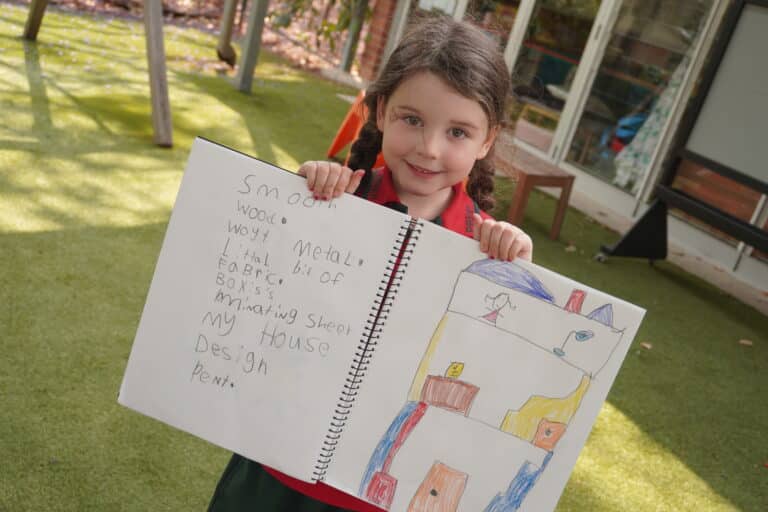 Smooth
wood.
wayt Metal.
Littal bit of
FaBric.
Boxis's
Aminating sheet
My House
Design
Pent.